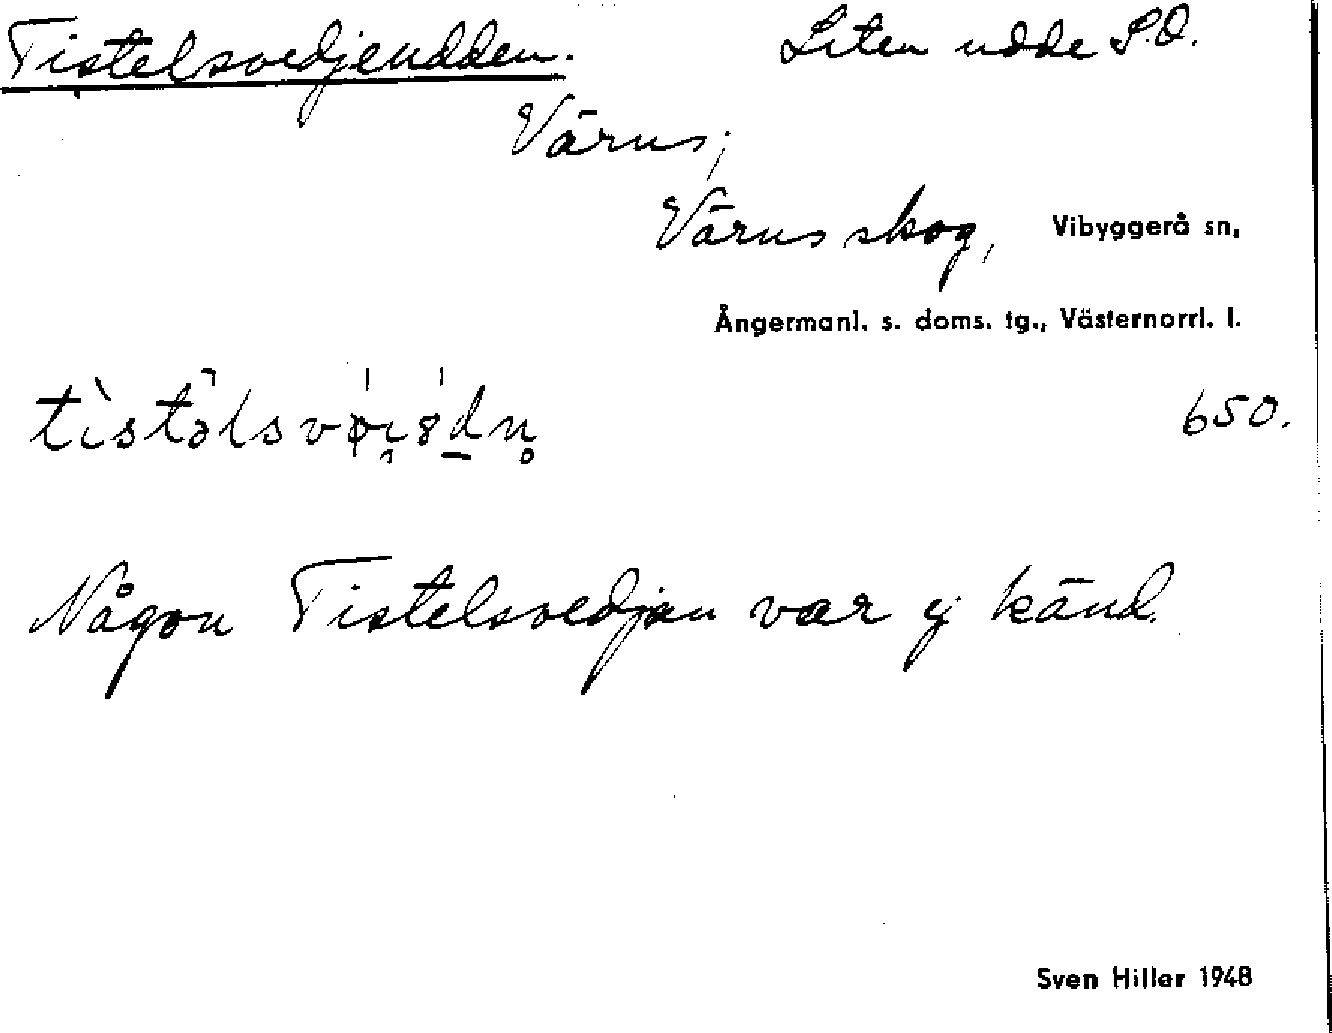 Tistelsvedjeudden. Liten udde S.O.
Värns;
Värns skog, Vibyggerå sn,
Ångermanl. s. doms. tg., Västernorrl. l.
650.
Någon Tistelsvedjan var ej känd.
Sven Hiller 1948